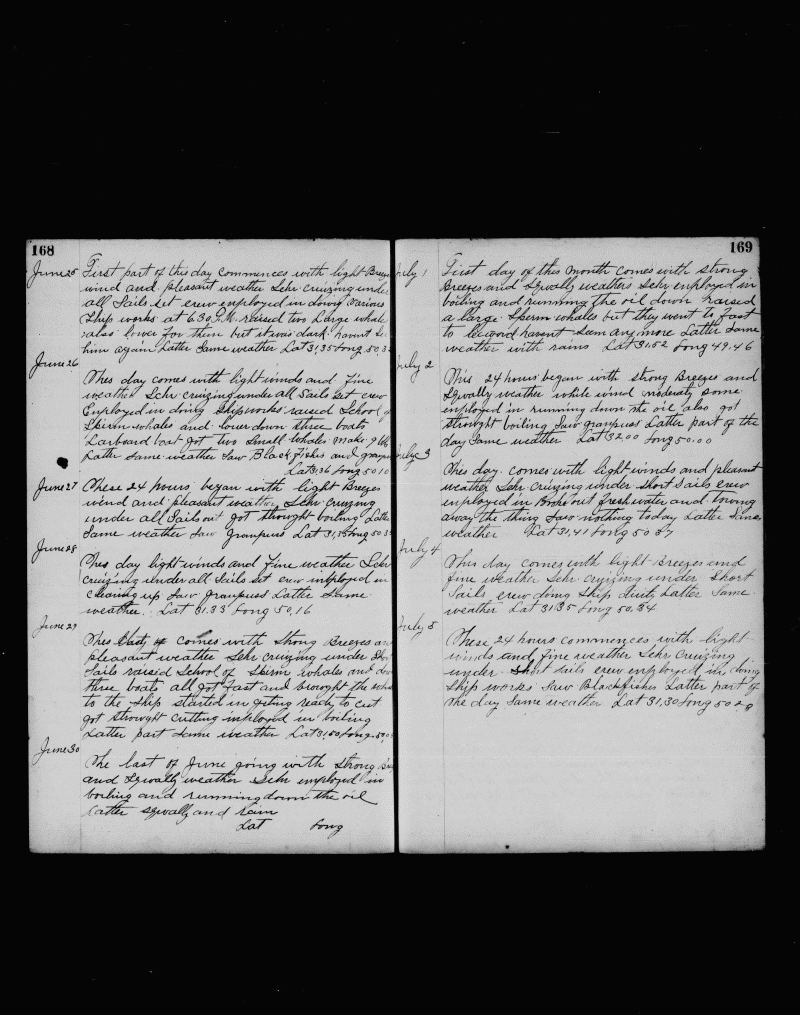 168
June 25 First part of this day commences with light Breeze
wind and pleasant weather Schr cruizing under
all Sails Set crew employed in doing various
Ship works at 6.30 P.M. raised two Large whale
also lower for them but it was dark havent se
him again Latter Same weather Lat 31,35 Long 50,3
June 26
This day comes with light winds and fine
weather Schr cruizing under all Sails set crew
Employed in doing Shipworks raised School of
Sperm whales and lower down three boats
Larboard boat got two Small whales make 9 bbls
Latter Same weather Saw Black Fishes and
Lat 31,36 Long 50 10
June 27 These 24 hours began with light Breezes
wind and pleasant weather Schr cruizing
under all Sails out got throught boiling Latter
Same weather Saw Grampuses Lat 31, Long 50
June 28
This day light winds and fine weather Schr
cruizing under all Sails Set crew imployed in
cleaning up Saw grampuses Latter Same
weather. Lat 31.33 Long 50,16
June 29
This comes with Strong Breezes an
pleasant weather Schr cruizing under Sho
Sails raised School of Sperm whales and
three boats all got fast and brought the
to the Ship started in geting ready to cut
got throught Cutting imployed in boiling
Latter part Same weather Lat 31,50 Long 50,
June 30
The last of June going with Strong
and Sqwally weather Schr employed in
boiling and running down the oil
Latter sqwally and rain
Lat Long
169
July 1 First day of this Month comes with strong
Breezes and Sqwally weathers Schr employed in
boiling and running the oil down raised
a large Sperm whales but they went to fast
to leeward havent Seen any more Latter Same
weather with rains Lat 31.52 Long 49.46
July 2
This 24 hours began with strong Breezes and
Sqwally weather while wind moderate some
employed in running down the oil also got
throught boiling Saw grampuses Latter part of the
day Same weather Lat 32.00 Long 50.00
July 3
This day comes with light winds and pleasant
weather Schr Cruizing under short Sails crew
employed in out fresh water and towing
away the thing Saw nothing today Latter Same
weather Lat 31,41 Long 50 57
July 4
This day comes with light Breezes and
fine weather Schr cruizing under Short
Sails crew doing Ship Latter Same
weather Lat 31.35 Long 50.34
July 5
These 24 hours commences with light
winds and fine weather Schr Cruizing
under Short Sails crew employed in doing
Ship works Saw Blackfishes Latter part of
the day Same weather Lat 31,30 Long 50 29